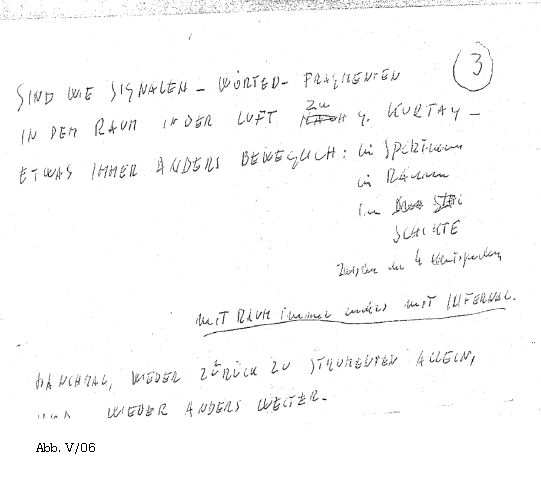 3
SIND WIE SIGNALEN – WÖRTED – FRAGMENTEN
IN DEM RAUM IN DER LUFT ZU G. KURTAG –
ETWAS IMMER ANDERS BEWEGLICH: im Spektrum
in Räumen
im
SCHICHTE
zwischen den 4
MIT RAUM immer anders MIT INFERNAL.
MANCHMAL, WIEDER ZÜRÜCK ZU STRUMENTEN ALLEIN,
WIEDER ANDERS WEITER.
Abb. V/06